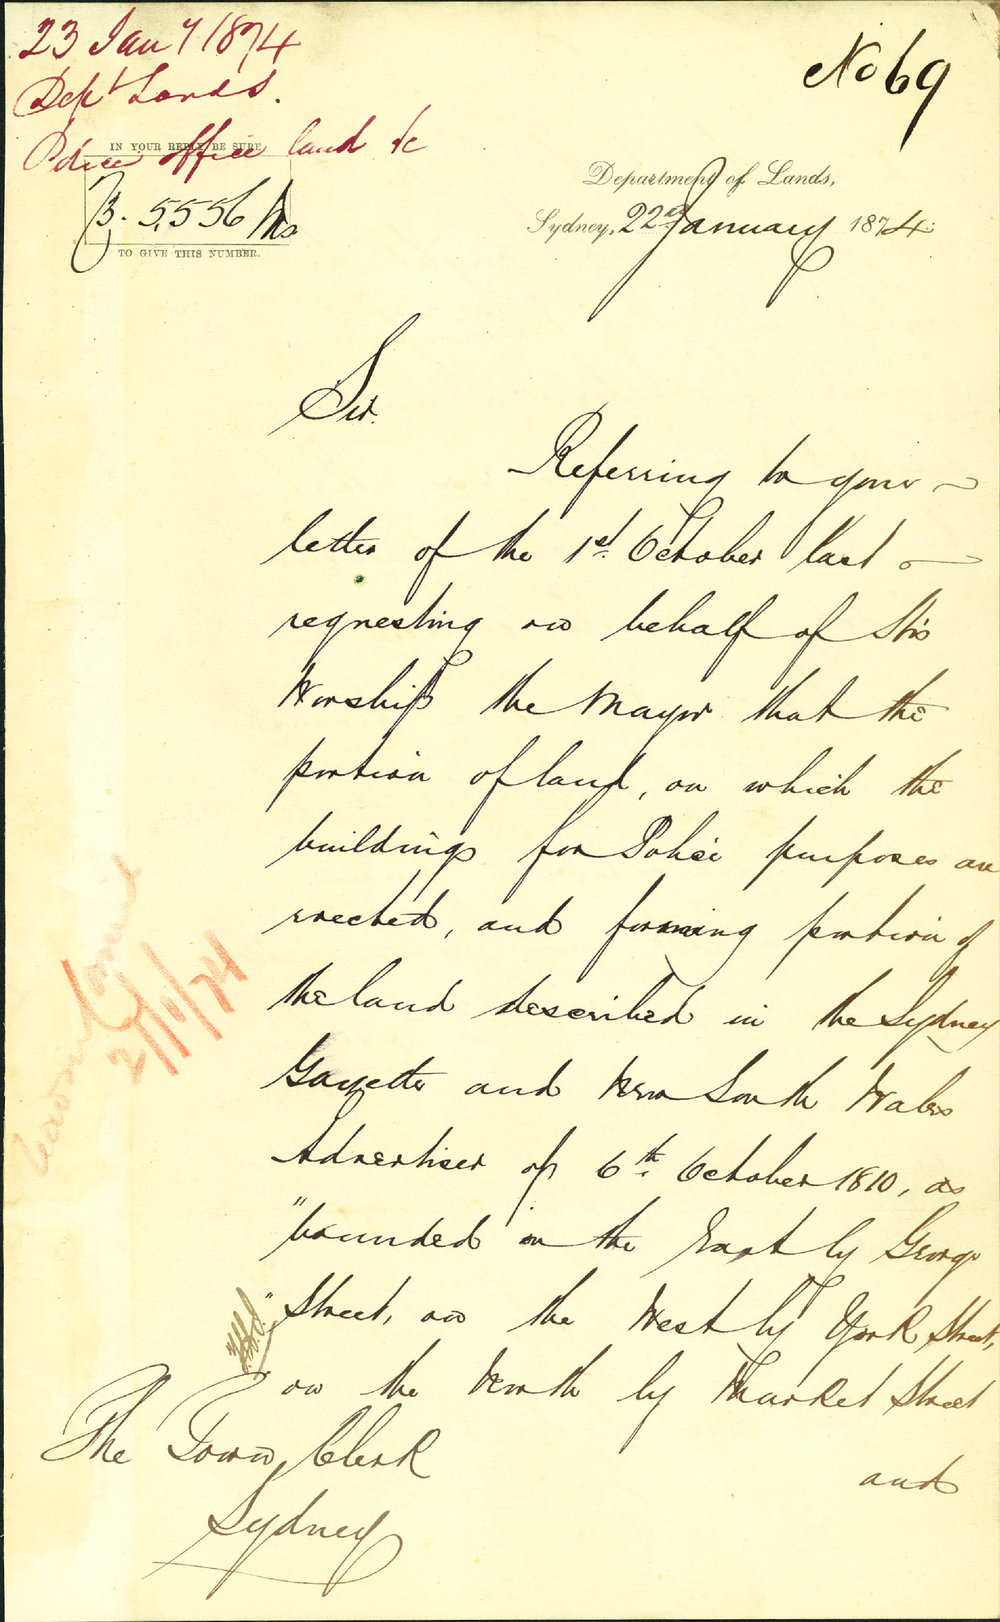 23 Jany 1874
Dept Lands.
Police office land &c
No 69
IN YOUR REPLY BE SURE
B. 5556
TO GIVE THIS NUMBER.
Department of Lands,
Sydney, 22nd January 1874.
Sir.
Referring to your
letter of the 1st. October last
requesting on behalf of His
Worship the Mayor that the
portion of land, on which the
buildings for Police purposes are
erected, and forming portion of
the land described in the Sydney
Gazette and New South Wales
Advertiser of 6th. October 1810, as
"bounded on the East by George
"Street, on the West by York Street,
on the North by Market Street
and
The Town Clerk
Sydney